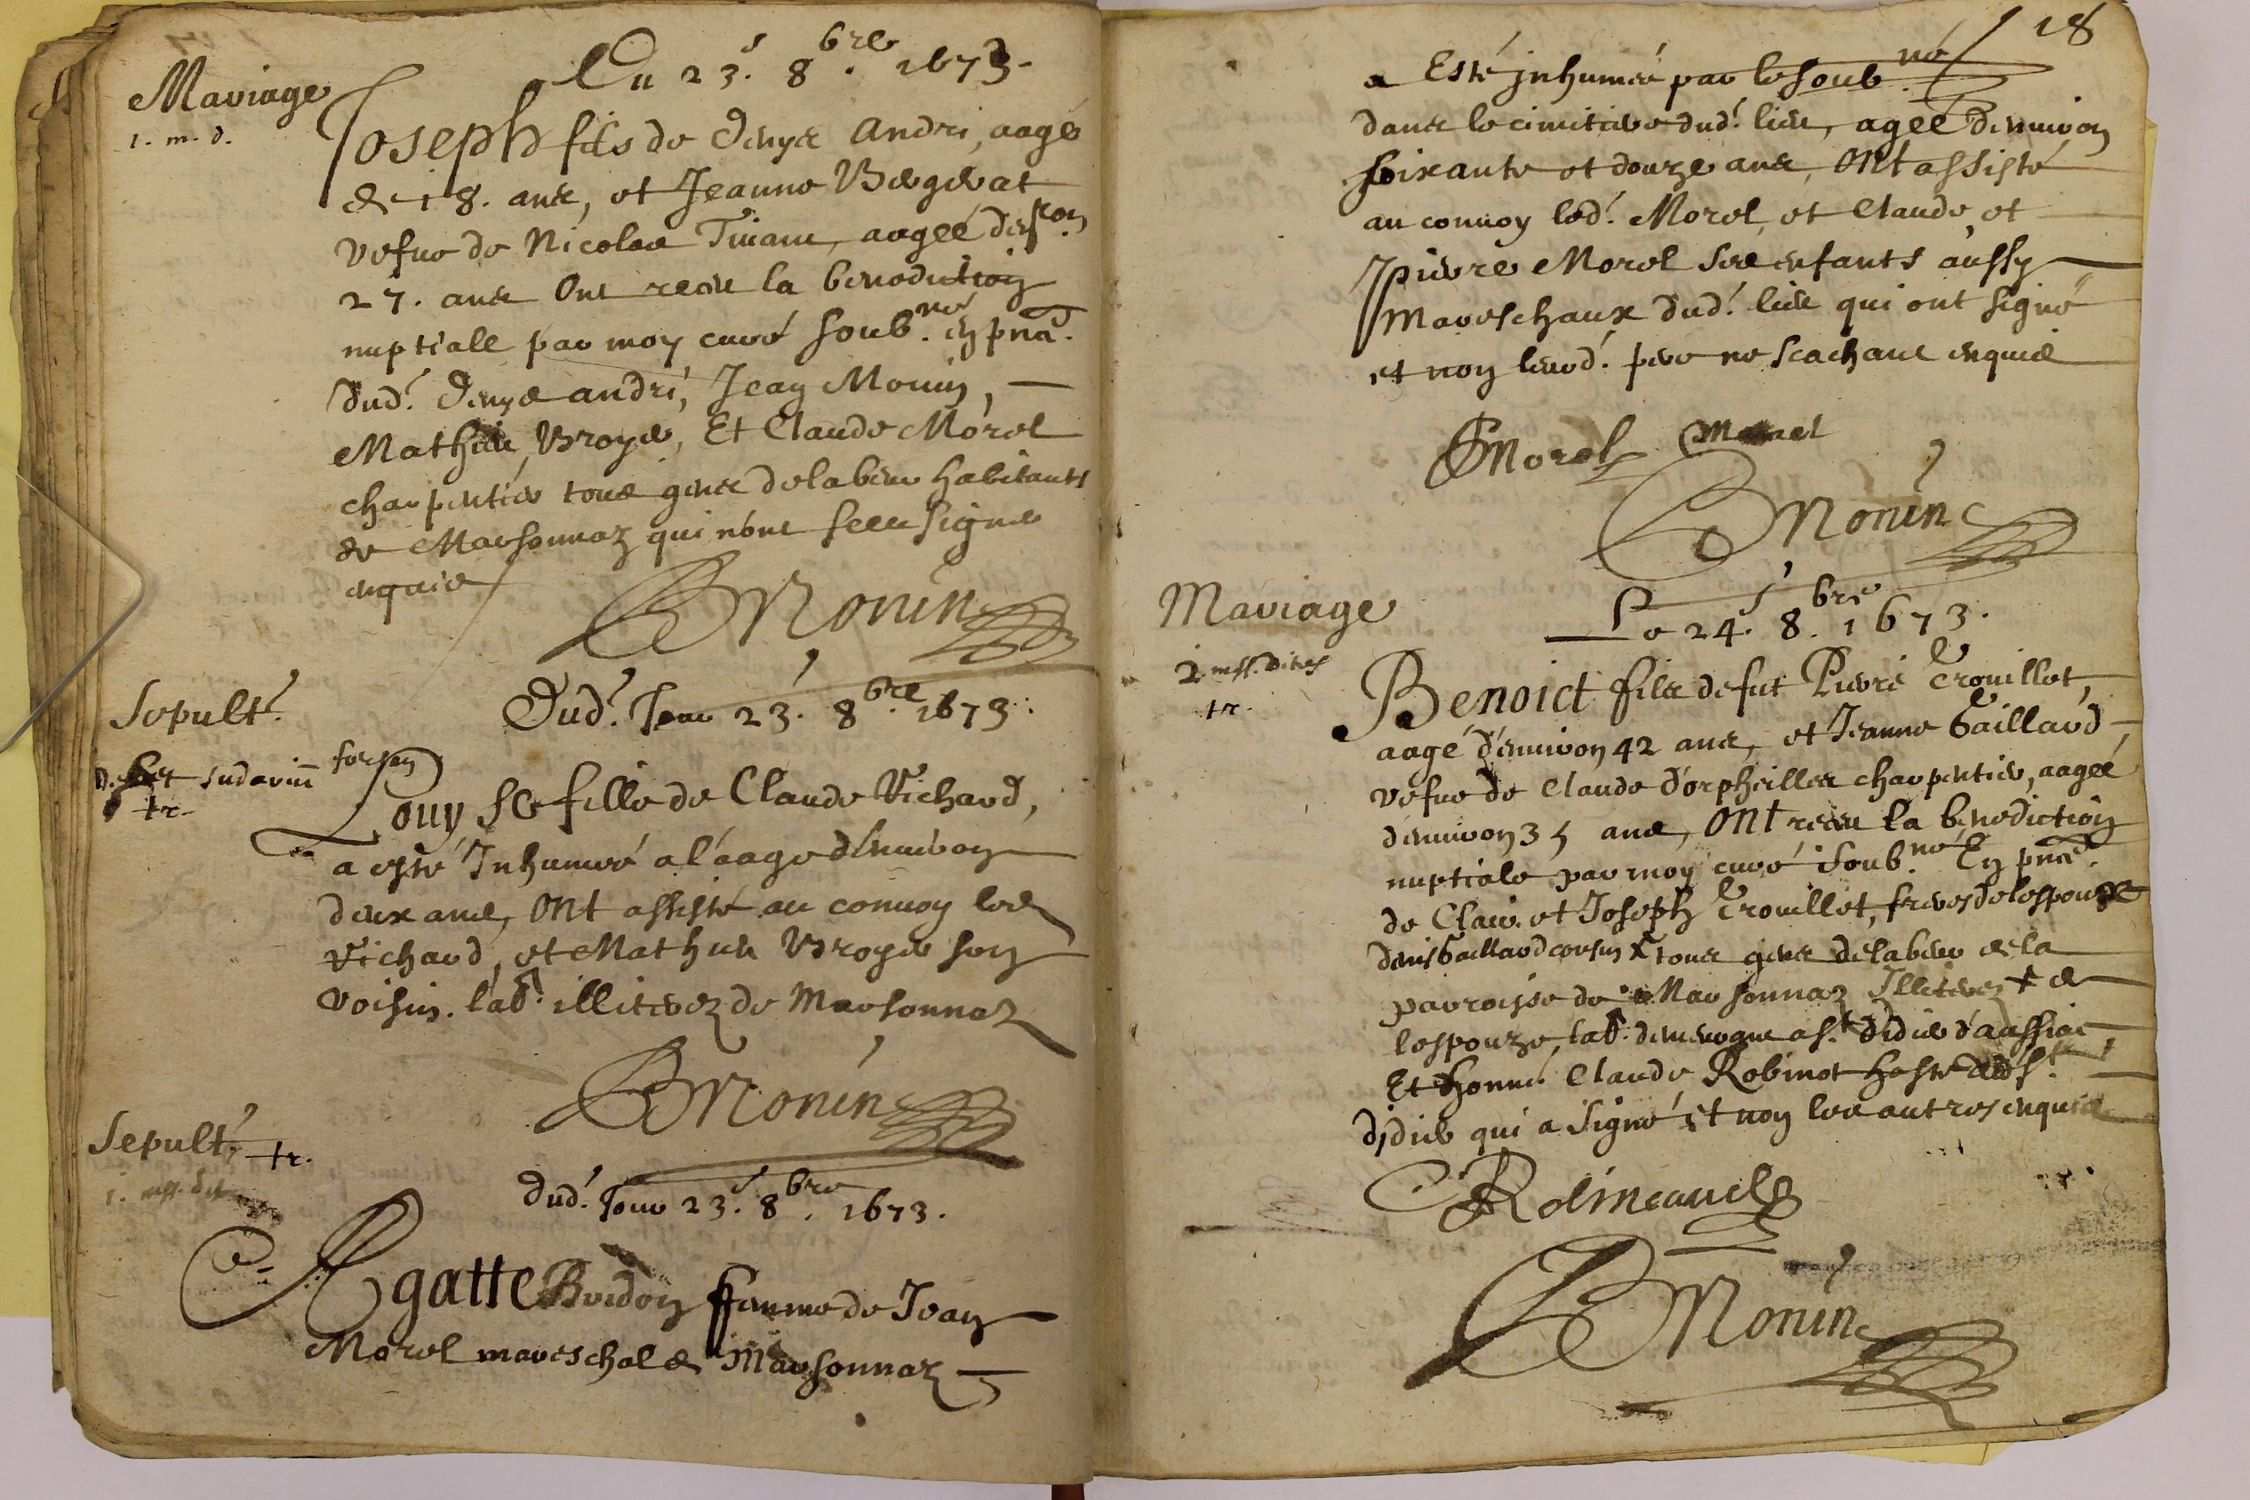 Mariage
1. m. d.
Du 23.e 8.bre 1673.
Joseph fils de Denys Andri, aagé
de 18. ans, et Jeanne Bergerat
vefue de Nicolas Tuiane, aagée d'e
27. ans ont receu la benediction
nuptiale par moy curé soub.né en pnce.
dud.t Denys andri, Jean Monin,
Mathieu Broyer, Et Claude Morel
charpentier tous gens de labeur habitants
de Marsonnaz qui n'ont sceu signer
enquis
Monin
Sepult.e
sudariũ
tr.
Dud.t Jour 23. 8.bre 1673.
Louyse fille de Claude Vichard,
a esté Inhumée a l'aage d'enuiron
deux ans, Ont assisté au conuoy led
Vichard, et Mathieu Broyer son
voisin. lab.r illiterez de Marsonnaz
Monin
Sepult.e tr.
1. mss. dit
Dud.t Jour 23.e 8.bre 1673.
Agatte Buidon femme de Jean
Morel mareschal de Marsonnaz
18
a Esté jnhumée par le soub.né
dans le cimitiere dud.t lieu, agée d'enuiron
soixante et douze ans, Ont assisté
au conuoy led.t Morel, et Claude et
pierre Morel ses enfants aussy
mareschaux dud.t lieu qui ont signé
et non leurd.t pere ne scachant enquis
Morel Morel
Monin
Mariage
2. mss. dites
tr.
Le 24.e 8.bre 1673.
Benoict fils de fut Pierre Trouillet,
aagé d'enuiron 42 ans, et Jeanne Gaillard
vefue de Claude d'orpheilles charpentier, aagée
d'enuiron 35 ans, Ont receu la benediction
nuptiale par moy curé soub.né En pnce.
de Clau. et Joseph Trouillet, freres de lespoux
denis Gaillard cousin tous gens de labeur de la
parroisse de Marsonnaz Illiterez + de
lespouze, lab.r as.t didier d'aussiac
Et honn. Claude Robinot hoste dud.t S.t
didier qui a signé et non les autres enquis
Monin